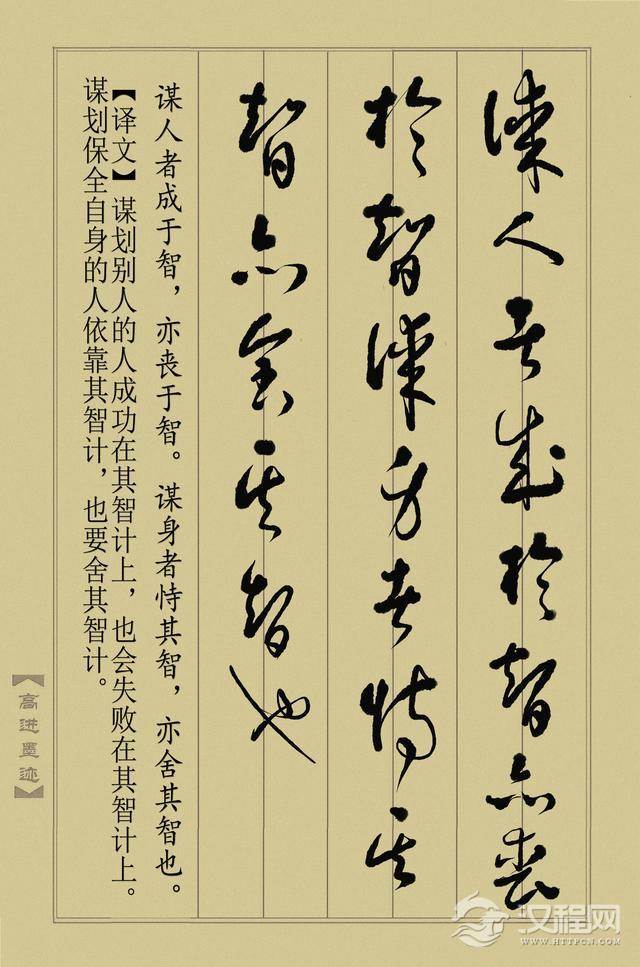 谋人者成於智亦丧
於智谋身者恃其
智亦舍其智也
谋人者成于智，亦丧于智。谋身者恃其智，亦舍其智也。
【译文】谋划别人的人成功在其智计上，也会失败在其智计上。
谋划保全自身的人依靠其智计，也要舍其智计。
【高进墨迹】
汉程网
WWW.HTTPCN.COM